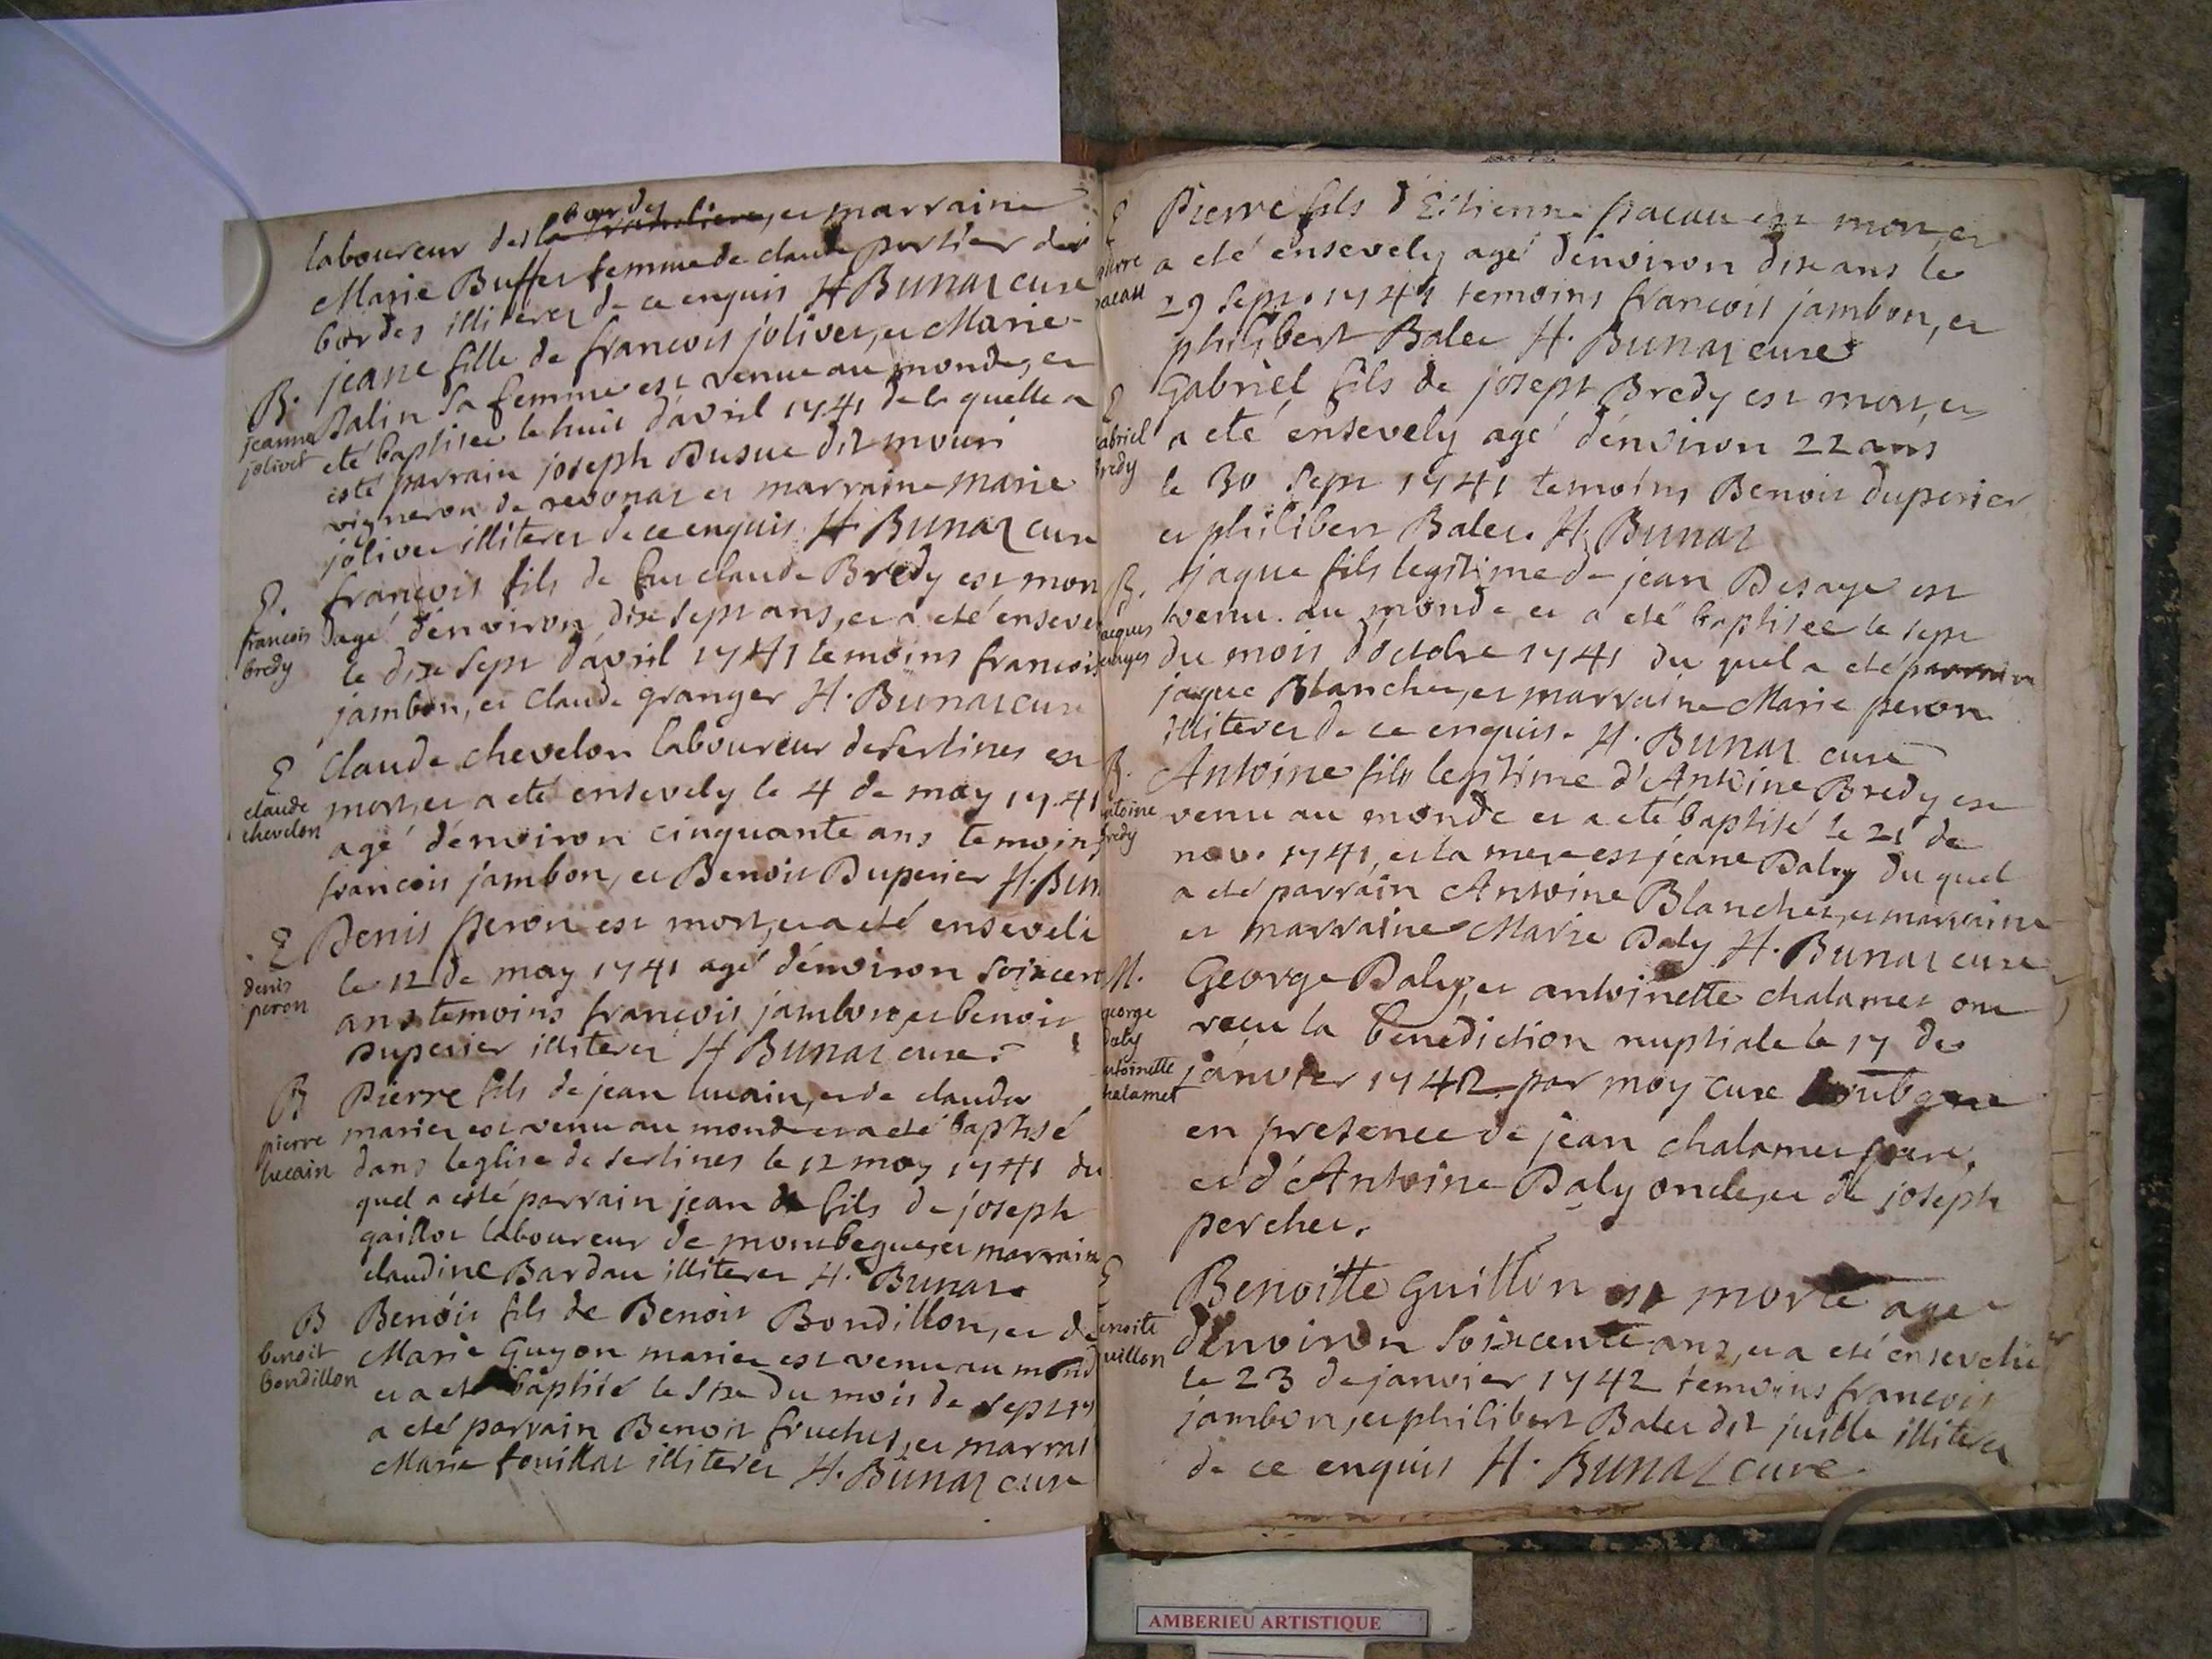 laboureur des bordes, et marraine
Marie Buffet femme de claude portier des
bordes illiterez de ce enquis H Bunaz cure
B. jeane fille de francois jolivet, et Marie
jeanne jolivet
Dalin sa femme est venue au monde, et
eté baptisee le huit d'avril 1741 de la quelle a
esté parrain joseph Dusue dit mouri
vigneron de revonaz et marraine marie
jolivet illiterez de ce enquis H Bunaz cure
E. francois fils de feu claude Bredy est mort
francois bredy
agé d'environ dix sept ans, et a eté enseve
le dix sept d'avril 1741 temoins francois
jambon, et claude granger H. Bunaz cure
E Claude chevelon laboureur de sertines est
claude chevelon
mort, et a eté ensevely le 4 de may 1741
agé d'environ cinquante ans temoins
francois jambon, et Benoit Duperier H. Bun
E Denis peron est mort, et a eté enseveli
denis peron
le 12 de may 1741 agé d'environ soixcent
ans temoins francois jambon, et benoit
Duperier illiterez H Bunaz cure.
B Pierre fils de jean lucain, et de claudu
pierre lucain
mariez est venu au monde et a eté baptisé
dans leglise de sertines le 12 may 1741 du
quel a esté parrain jean fils de joseph
gaillot laboureur de mombegue, et marraine
claudine Bardau illiterez H. Bunaz
B Benoit fils de Benoit Bondillon, et de
benoit bondillon
Marie Guyon mariez est venu au mond
et a eté baptisé le six du mois de sept 17
a eté parrain Benoit fruchet, et marrai
Marie fouillat illiterez H. Bunaz cure
E Pierre fils d'Estienne pacau est mort, et
pierre pacau
a eté ensevely agé d'environ dix ans le
29 sept. 1741 temoins francois jambon, et
philibert Balet H. Bunaz cure
E Gabriel fils de joseph Bredy est mort, et
gabriel bredy
a eté ensevely agé d'environ 22 ans
le 30 sept 1741 temoins Benoit duperier
et philibert Balet. H. Bunaz
B. jaque fils legitime de jean Desaye est
jacques
venu au monde et a eté baptisee le sept
du mois d'octobre 1741 du quel a eté parrain
jaque Blanchet, et marraine Marie peron
illiterez de ce enquis. H. Bunaz cure
B. Antoine fils legitime d'Antoine Bredy est
antoine bredy
venu au monde et a eté baptisé le 21 de
nov. 1741, et la mere est jeane Daly du quel
a eté parrain Antoine Blanchet, et marraine
et marraine Marie Daly H. Bunaz cure
M. George Daly, et antoinette chalamet ont
george daly antoinette chalamet
reçu la benediction nuptiale le 17 de
janvier 1742 par moy cure
en presence de jean chalamet pere,
et d'Antoine Daly oncle, et de joseph
perchet.
E Benoitte Guillon est morte agee
benoite guillon
d'environ soixcente ans, et a eté ensevelie
le 23 de janvier 1742 temoins francois
jambon, et philibert Balet dit juille illiterez
de ce enquis H. Bunaz cure.
AMBERIEU ARTISTIQUE